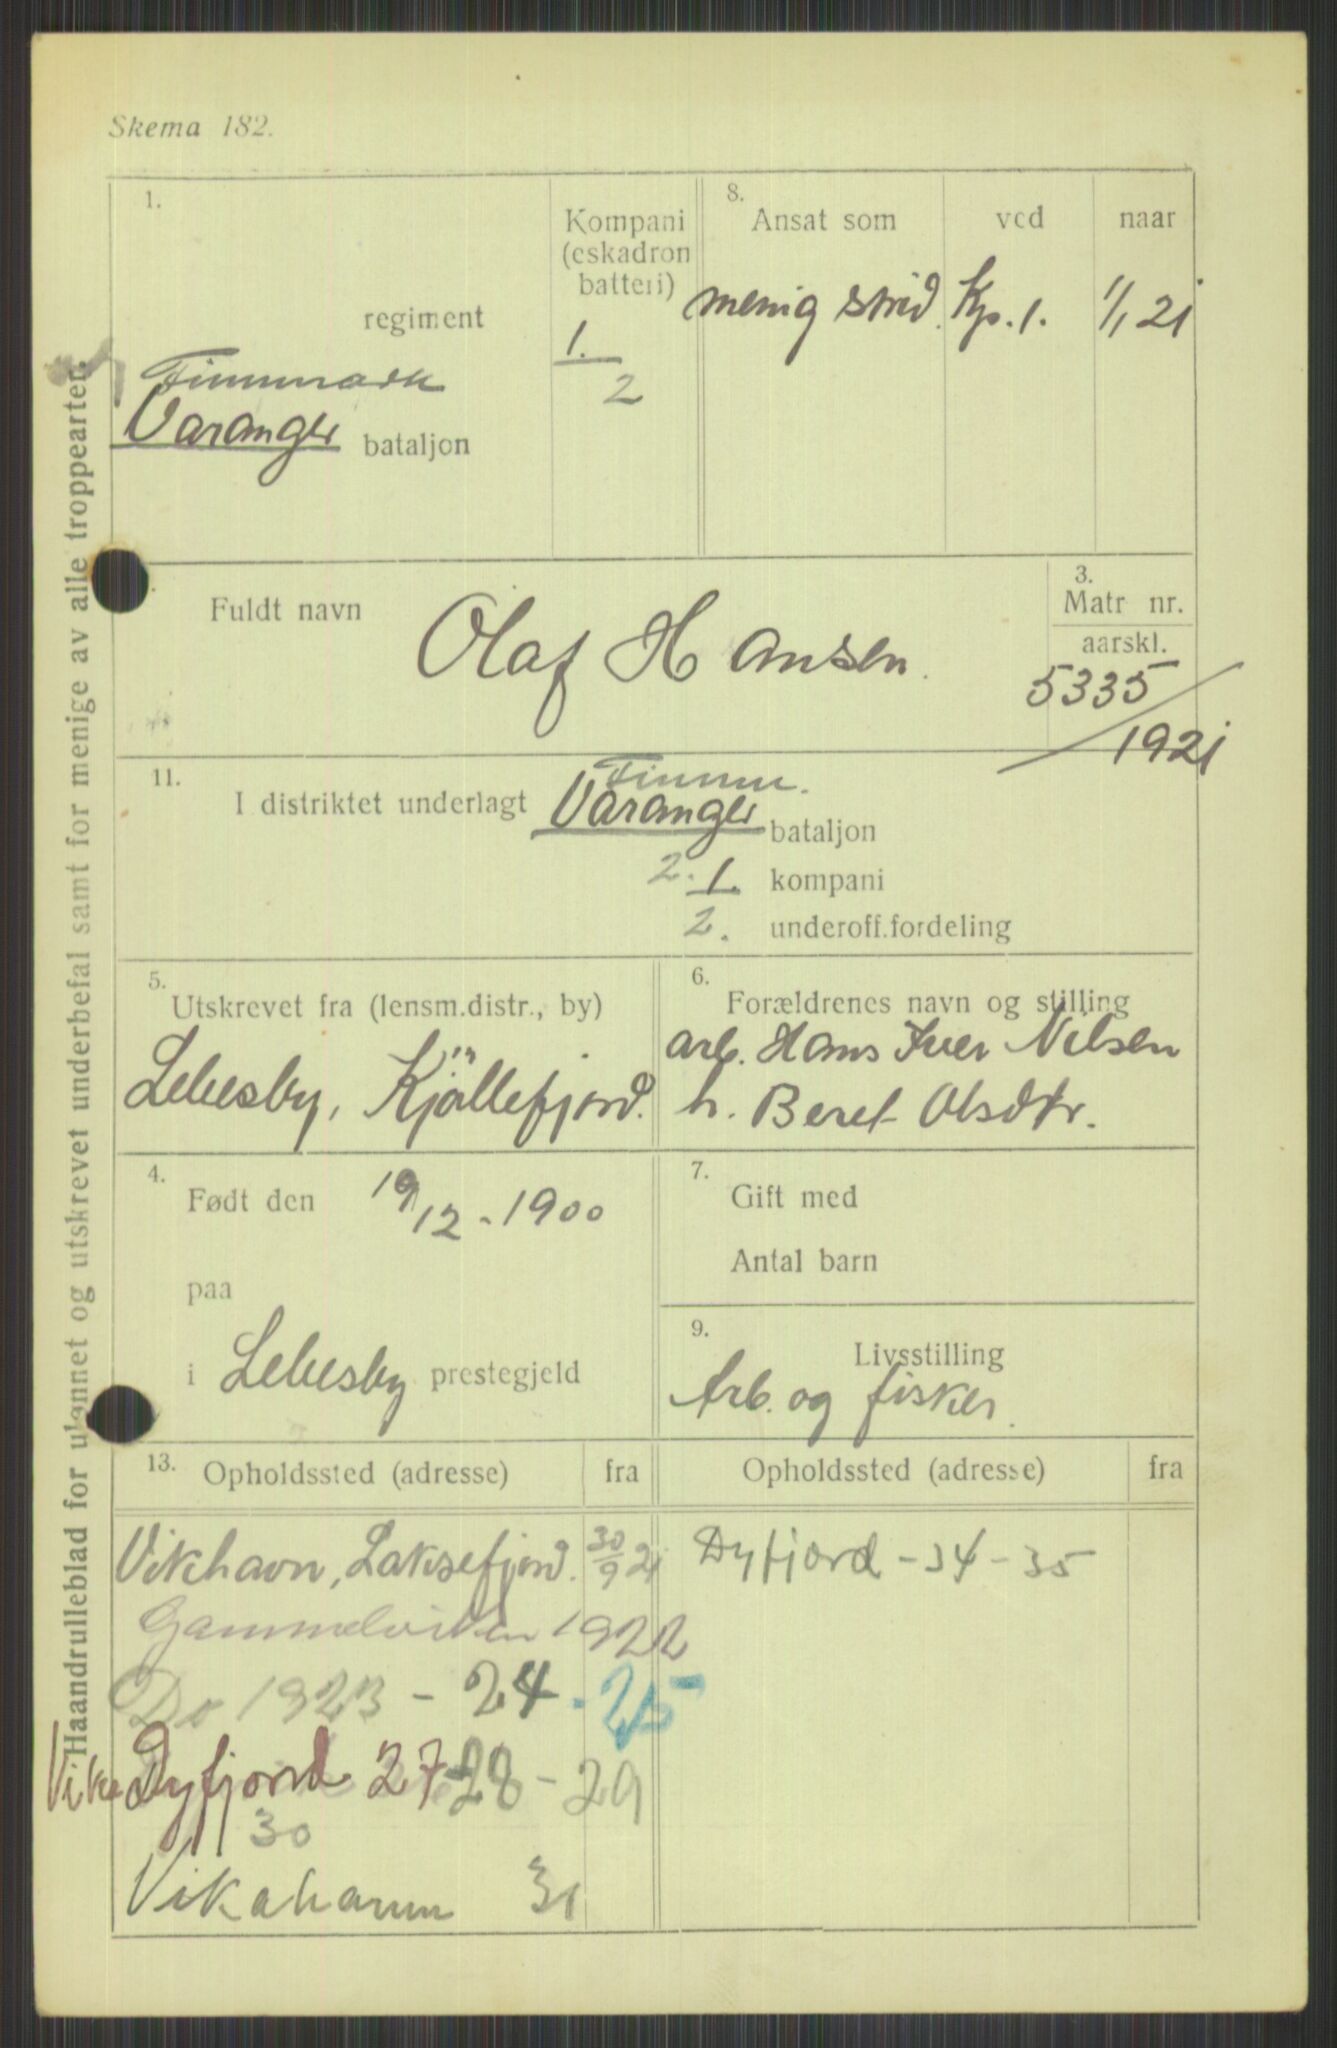 Skema 182.
Haandrulleblad for utannet og utskrevet underbefal samt for menige av alle troppearter.
1.
regiment
Finnmark
Varanger bataljon
Kompani
(eskadron
batteri)
1.
2
8.
Ansat som
ved
naar
menig strid. Kp. 1. 1/1 21
Fuldt navn
Olaf Hansen.
3.
Matr nr.
aarskl.
5335/
1921
11.
Finnm.
I distriktet underlagt Varanger bataljon
2. 1. kompani
2. underoff.fordeling
5.
Utskrevet fra (lensm.distr., by)
Lebesby, Kjøllefjord.
6.
Forældrenes navn og stilling
arb. Hans Iver Nilsen
h. Beret Olsdtr.
4.
Født den 19/12 - 1900
paa
i Lebesby prestegjeld
7.
Gift med
Antal barn
9.
Livsstilling
Arb. og fisker.
13. Opholdssted (adresse) fra
Opholdssted (adresse) fra
Vikhavn, Laksefjord. 30/9 21
Gammelviken 1922
Do 1923 - 24 - 25
Dyfjord 27-28 - 29
30
Vikahavn 31
Dyfjord - 34 - 35